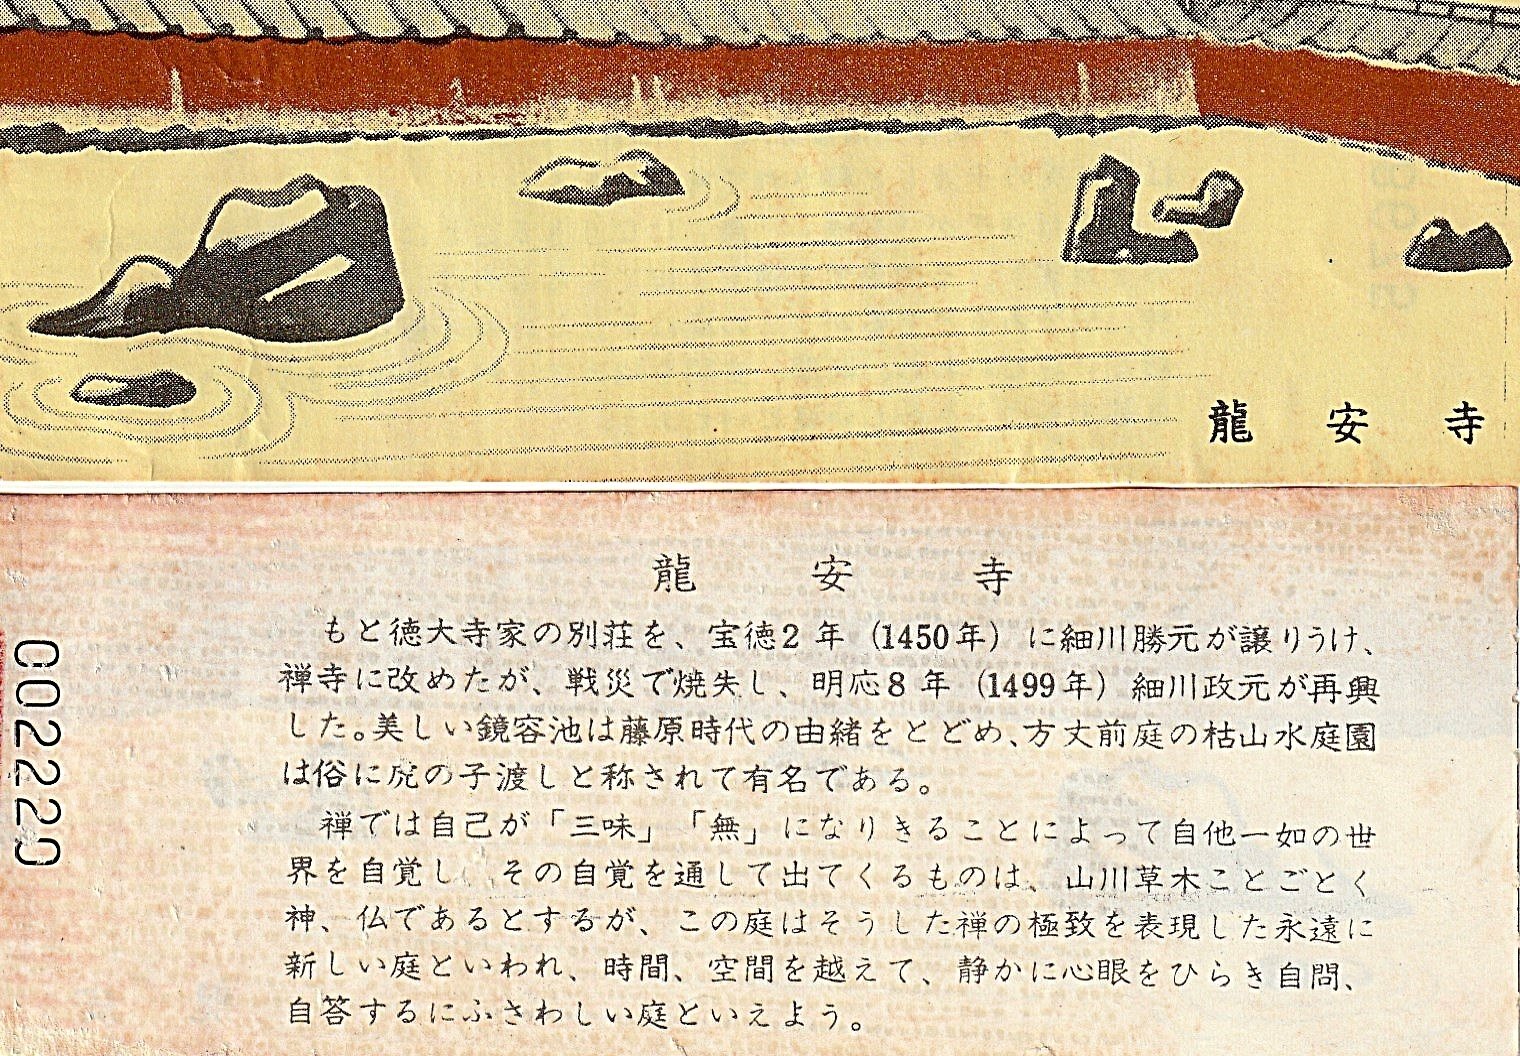 龍安寺
龍安寺
もと徳大寺家の別荘を、宝徳2年（1450年）に細川勝元が譲りうけ、
禅寺に改めたが、戦災で焼失し、明応8年（1499年）細川政元が再興
した。美しい鏡容池は藤原時代の由緒をとどめ、方丈前庭の枯山水庭園
は俗に虎の子渡しと称されて有名である。
禅では自己が「三味」「無」になりきることによって自他一如の世
界を自覚し、その自覚を通して出てくるものは、山川草木ことごとく
神、仏であるとするが、この庭はそうした禅の極致を表現した永遠に
新しい庭といわれ、時間、空間を越えて、静かに心眼をひらき自問、
自答するにふさわしい庭といえよう。
002229